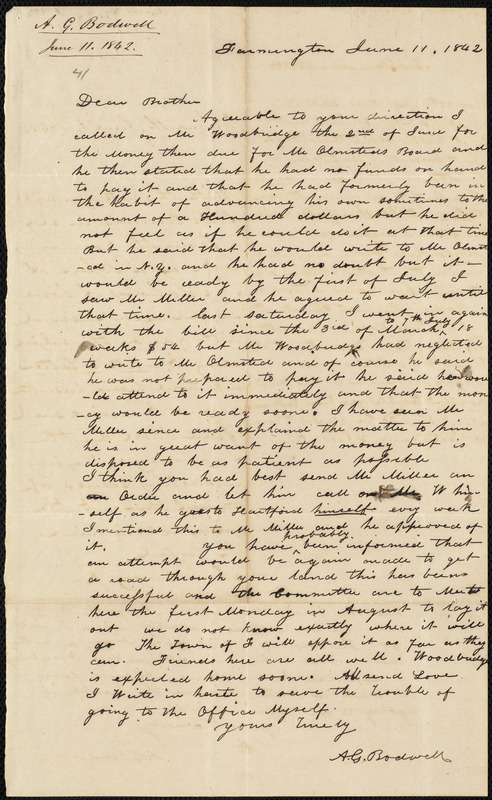 A. G. Bodwell
June 11. 1842.
41
Farmington June 11. 1842
Dear Brother
Agreeable to your direction I
called on Mr Woodbridge the 2nd of June for
the Money then due for Mr Olmsteds Board and
he then stated that he had no funds on hand
to pay it and that he had formerly been in
the habit of advancing his own sometimes to the
amount of a Hundred dollars but he did
not feel as if he could do it at that time
But he said that he would write to Mr Olmst
-ed in N.Y. and he had no doubt but it
would be ready by the first of July I
saw Mr Miller and he agreed to wait until
that time. last saturday I went in again
with the bill since the 3rd of March to 7th July 18
weeks $54 but Mr Woodbridge had neglected
to write to Mr Olmsted and of course he said
he was not prepared to pay it he said he wou
-ld attend to it immediately and that the mon
-ey would be ready soone. I have seen Mr
Miller sence and explaind the matter to him
he is in great want of the money but is
disposed to be as patient as possible
I think you had best send Mr Miller an
Order and let him call on Mr W him
-self as he goes to Hartford himself evry week
I mentiond this to Mr Miller and he approved of
it. you have probably been informed that
an attempt would be again made to get
a road through your land this has been
successful and the Committee are to Meet
here the first Monday in August to lay it
out we do not know exactly where it will
go The Town of F will oppose it as far as they
can. Friends here are all well. Woodbridge
is expected home soone. All send Love
I Write in haste to save the trouble of
going to the Office Myself.
yours Truely
A.G. Bodwell